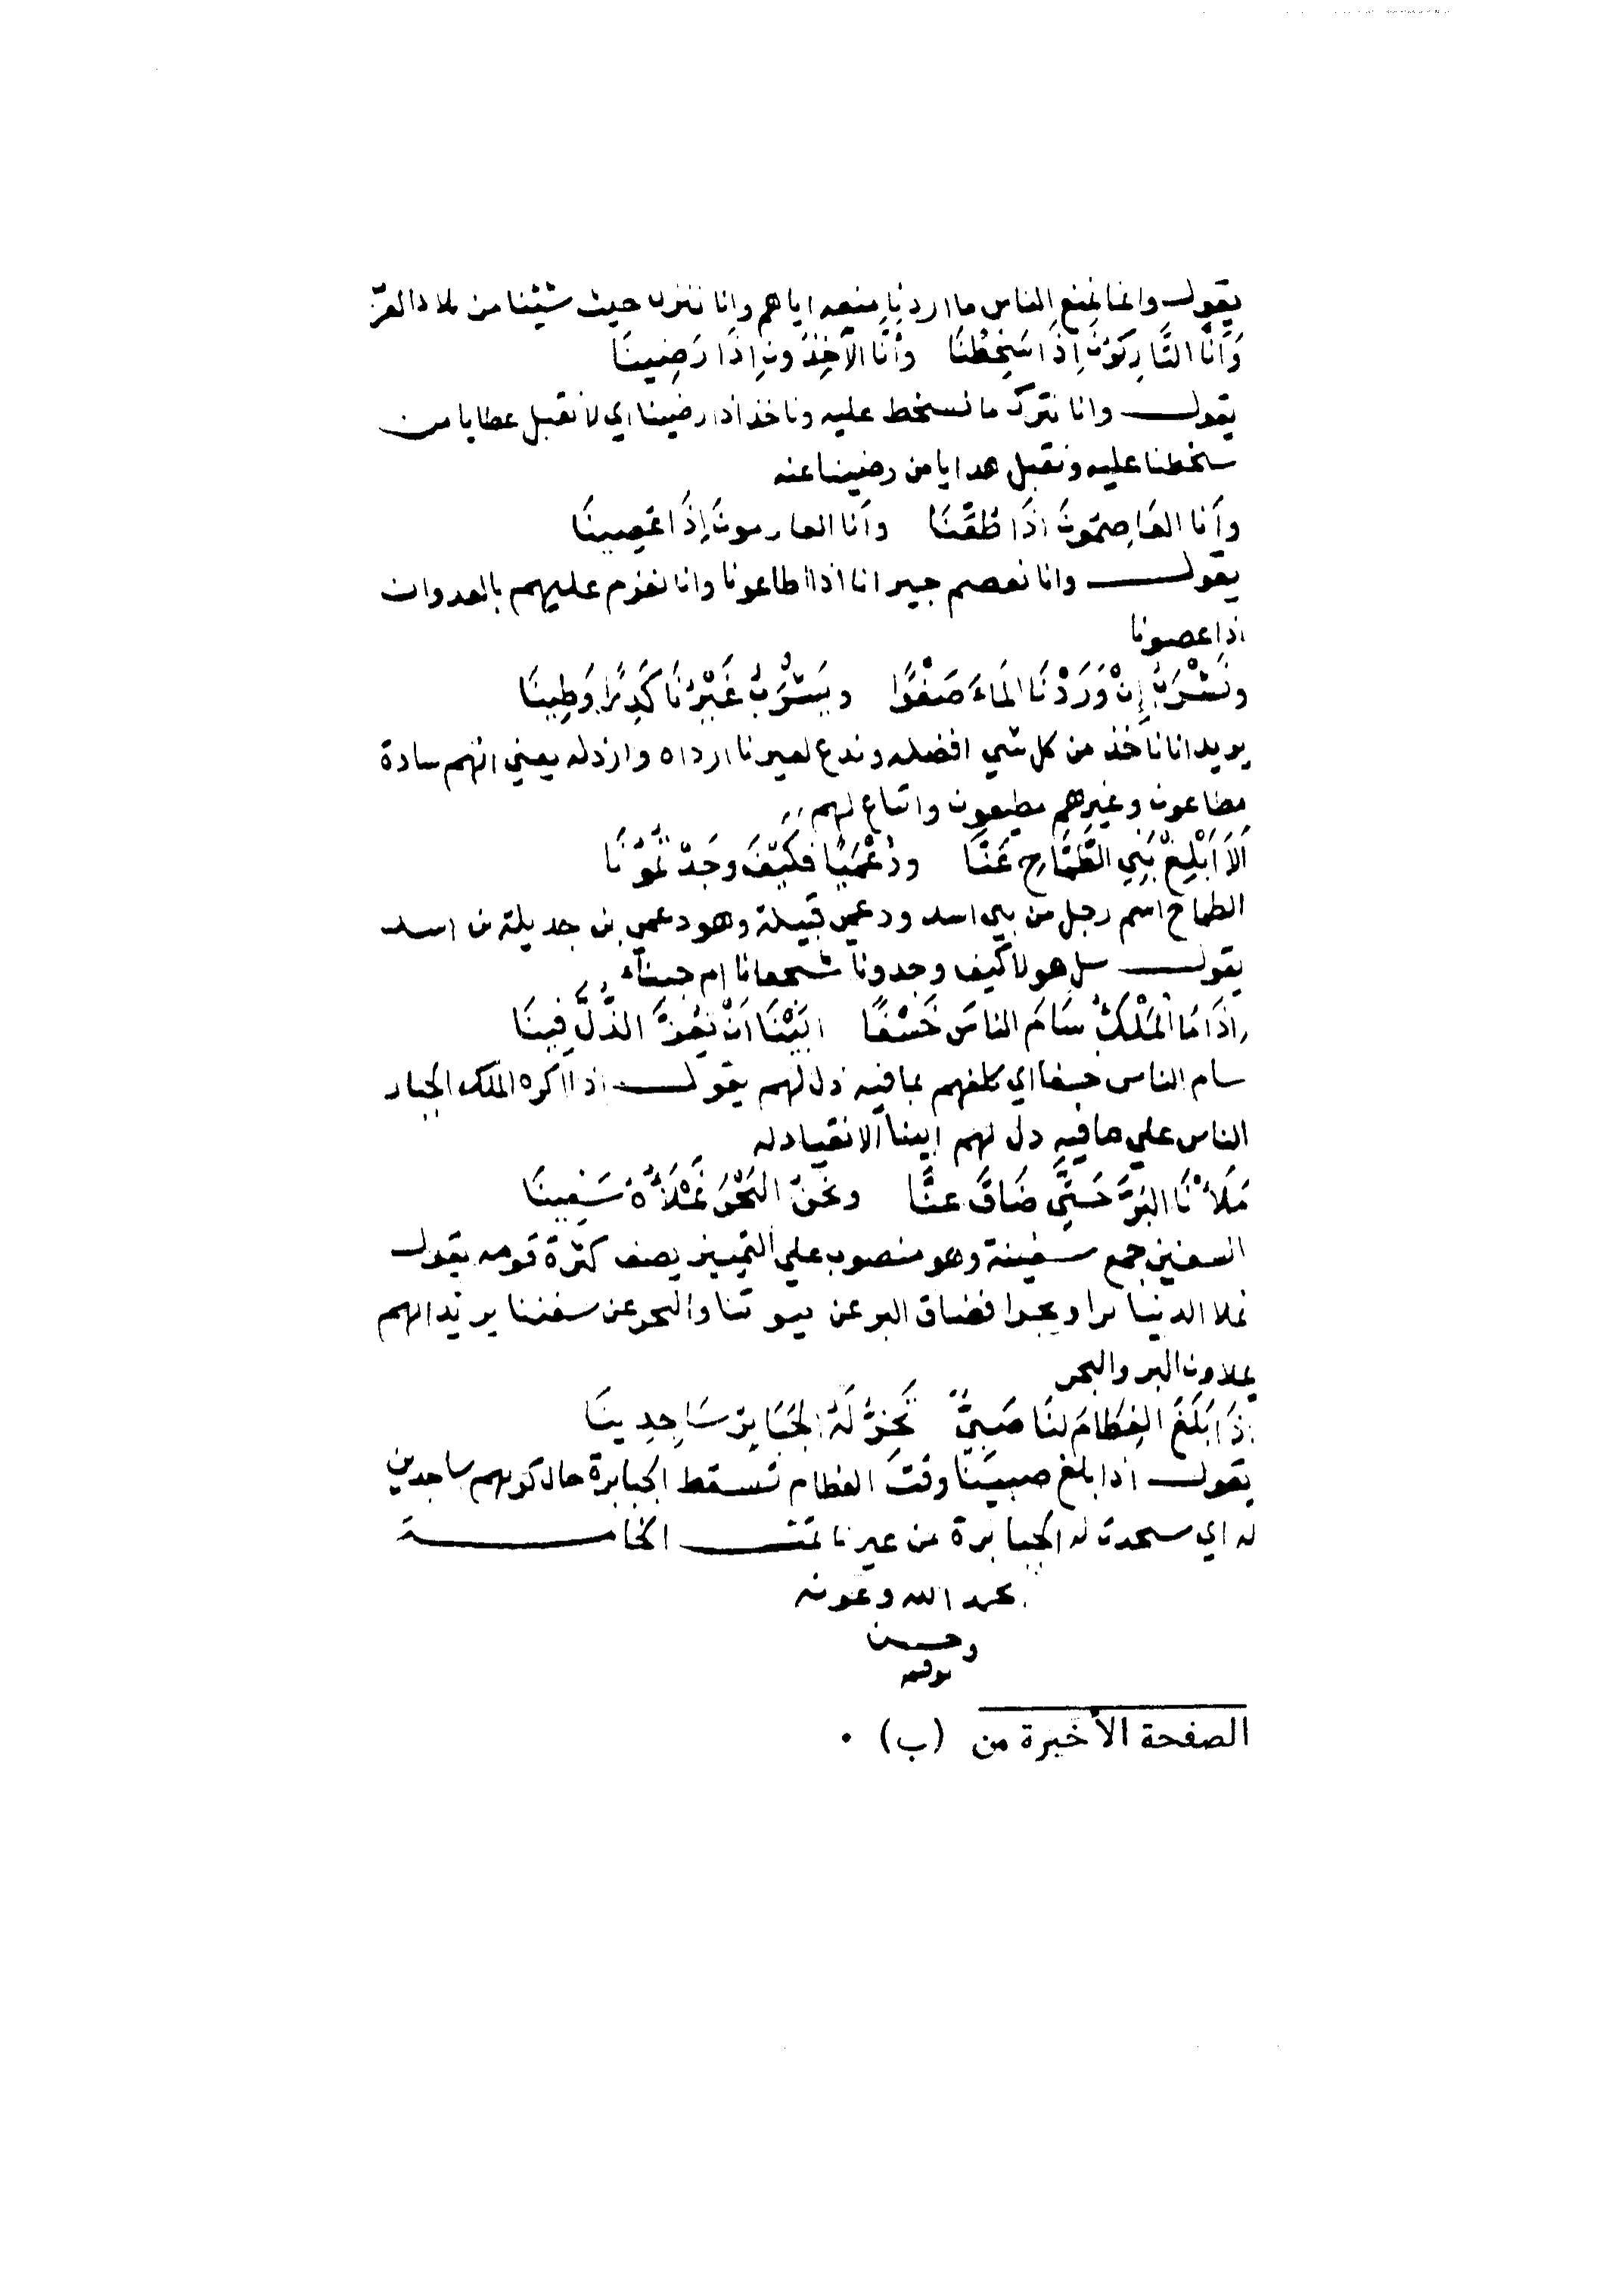 يقول وانا نمنع الناس ما اردنا منعه اياهم وانا ننزل حيث شئنا من بلاد العرب
وَأَنَّا التَّارِكُونَ اِذَا سَخِطْنَا وأَنَّا الآخِذُونَ اِذَا رَضِينَا
يقول وانا نترك ما نسخط عليه وناخذ اذا رضينا اي لا نقبل عطايا من
سخطنا عليه ونقبل هدايا من رضينا عنه
وأَنا العَاصِمُونَ اذَا طُعْنَا وأَنا العارمونَ اِذَا عُصِينَا
يقول وانا نعصم جيراننا اذا اطاعونا وانا نعزم عليهم بالعدوان
اذا عصونا
ونَشْرَبُ إِنْ وَرَدْنَا المَاءَ صَفْوًا ويَشْرَبُ غَيْرُنَا كَدِرًا وَطِينَا
يريد انا ناخذ من كل شي افضله وندع لغيرنا ارداه وارذله يعني انهم سادة
مطاعون وغيرهم مطيعون واتباع لهم
اَلَا اَبْلِغْ بَنِي الطَّمَّاحِ عَنَّا ودُعْمِيًّا فَكَيْفَ وجَدْتُمُونَا
الطماح اسم رجل من بني اسد ودعمي قبيلة وهو دعمي بن جديلة بن اسد
يقول سل هولا كيف وجدونا شجعانا ام جبناء
اِذَا مَا المَلْكُ سَامَ الناسَ خَسْفًا ابَيْنَا اَنْ نُقِرَّ الذُّلَّ فِينَا
سام الناس خسفا اي كلفهم بما فيه ذل لهم يقول اذا اكره الملك الجبار
الناس علي ما فيه دل لهم ابينا الانقياد له
مَلَأْنَا البَرَّ حَتَّي ضَاقَ عَنَّا ونَحْنُ البَحْرَ نَمْلَأُهُ سَفِينَا
السفين جمع سفينة وهو منصوب علي التمييز يصف كثرة قومه يقول
نملا الدنيا برا وبحرا فضاق البر عن بيوتنا والبحر عن سفننا يريد انهم
يملاون البر والبحر
اِذَا بَلَغَ الفِطَامَ لَنَا صَبِيٌّ تَخِرُّ لَهُ الجَبَابِرُ سَاجِدِينَا
يقول اذا بلغ صبيّنا وقت الفطام تسقط الجبابرة حال كونهم ساجدين
له اي سجدت له الجبابرة من غيرنا تمت الخامسة
بحمد الله وعونه
وحسن
توفيقه
الصفحة الأخيرة من (ب) .